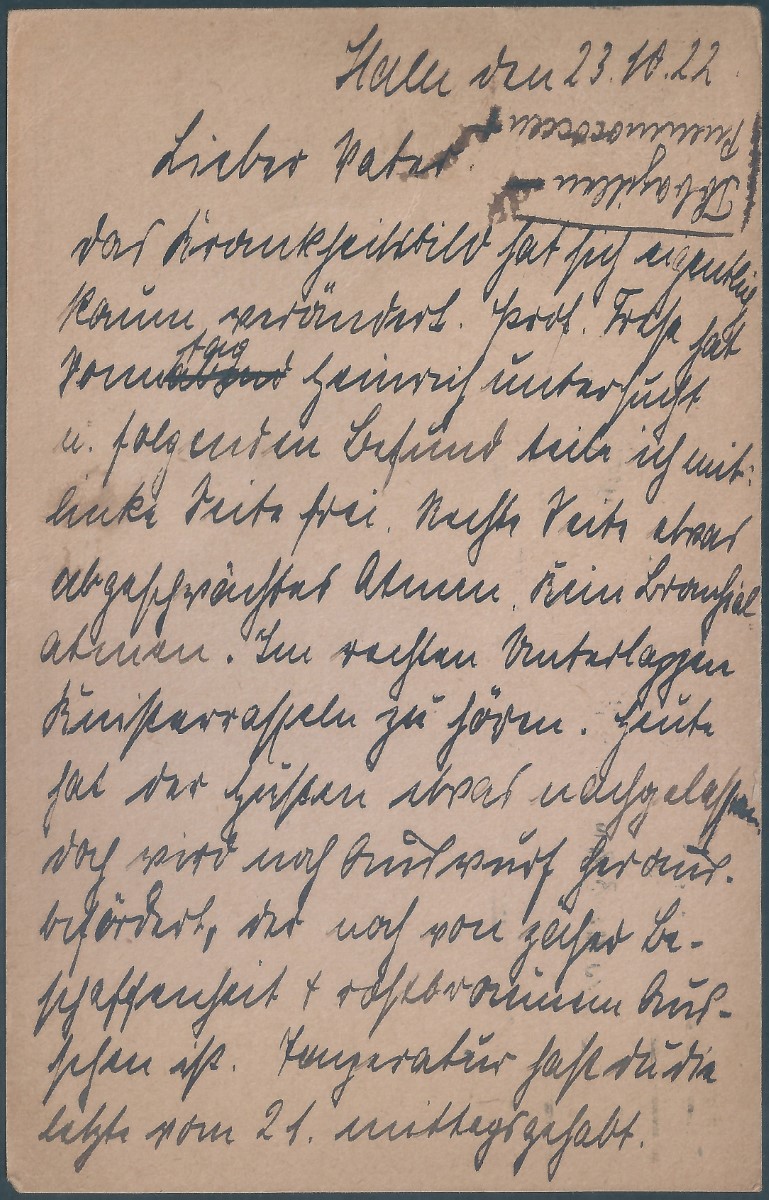 Halle den 23.10.22
Lieber Vater.
Pneumococcen +
Tbbazillen –
das Krankheitsbild hat sich eigentlich
kaum verändert. Prof. Frese hat
Sonntag Heinrich untersucht
u. folgenden Befund teile ich mit:
linke Seite frei. Rechte Seite etwas
abgeschwächtes Atmen. Kein Bronchial-
atmen. Im rechten Unterlappen
Knisterrasseln zu hören. Heute
hat der Husten etwas nachgelassen.
doch wird noch Auswurf heraus-
befördert, der noch von zäher Be-
schaffenheit + rostbraunem Aus-
sehen ist. Temperatur hast du die
letzte vom 21. mittags gehabt.